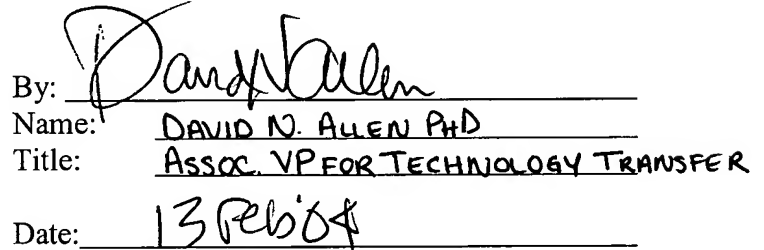 By: David N Allen
Name: DAVID N. ALLEN PHD
Title: ASSOC. VP FOR TECHNOLOGY TRANSFER
Date: 13 Feb'04